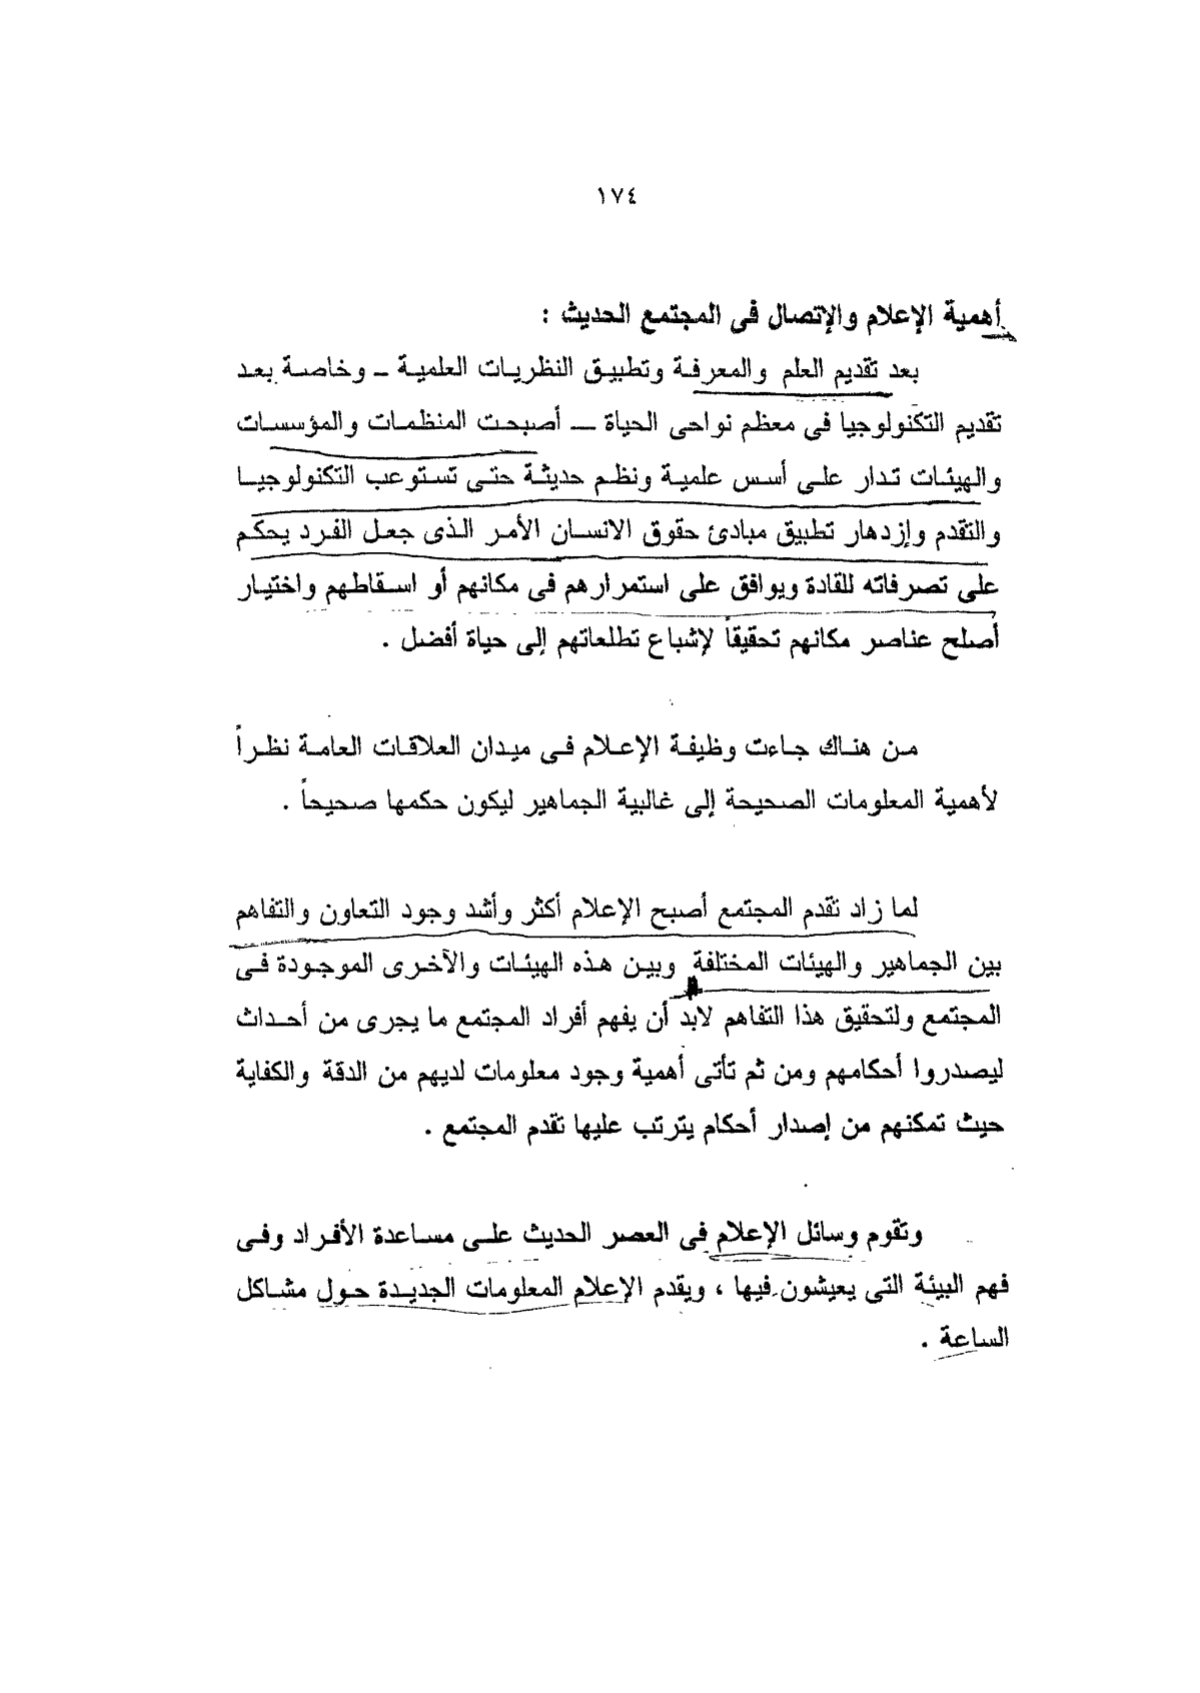 ١٧٤
أهمية الإعلام والإتصال فى المجتمع الحديث :
بعد تقديم العلم والمعرفة وتطبيق النظريات العلمية – وخاصة بعد
تقديم التكنولوجيا فى معظم نواحى الحياة – أصبحت المنظمات والمؤسسات
والهيئات تدار على أسس علمية ونظم حديثة حتى تستوعب التكنولوجيا
والتقدم وإزدهار تطبيق مبادئ حقوق الانسان الأمر الذى جعل الفرد يحكم
على تصرفاته للقادة ويوافق على استمرارهم فى مكانهم أو اسقاطهم واختيار
أصلح عناصر مكانهم تحقيقاً لإشباع تطلعاتهم إلى حياة أفضل .
من هناك جاءت وظيفة الإعلام فى ميدان العلاقات العامة نظراً
لأهمية المعلومات الصحيحة إلى غالبية الجماهير ليكون حكمها صحيحاً .
لما زاد تقدم المجتمع أصبح الإعلام أكثر وأشد وجود التعاون والتفاهم
بين الجماهير والهيئات المختلفة وبين هذه الهيئات والآخرى الموجودة فى
المجتمع ولتحقيق هذا التفاهم لابد أن يفهم أفراد المجتمع ما يجرى من أحداث
ليصدروا أحكامهم ومن ثم تأتى أهمية وجود معلومات لديهم من الدقة والكفاية
حيث تمكنهم من إصدار أحكام يترتب عليها تقدم المجتمع .
وتقوم وسائل الإعلام فى العصر الحديث على مساعدة الأفراد وفى
فهم البيئة التى يعيشون فيها ، ويقدم الإعلام المعلومات الجديدة حول مشاكل
الساعة .